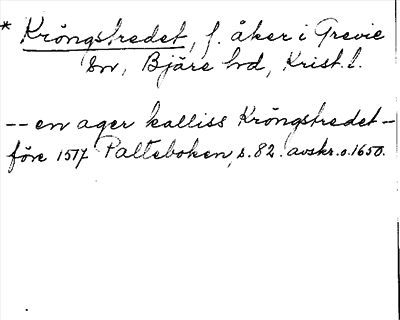 * Krångstredet, f. åker i Grevie
sn, Bjäre hd, Krist. l.
-- en ager kalliss Krångstredet --
före 1517 Palteboken, s. 82. avskr. o. 1650.